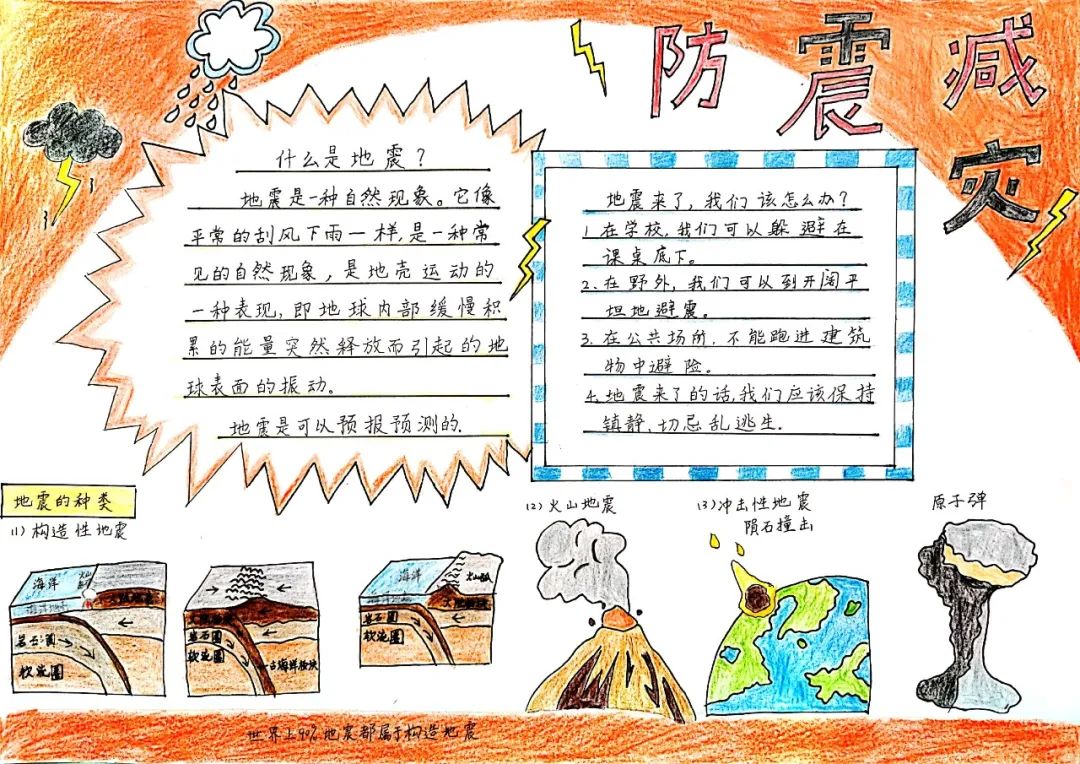 防震减
灾
什么是地震？
地震是一种自然现象。它像
平常的刮风下雨一样,是一种常
见的自然现象，是地壳运动的
一种表现,即地球内部缓慢积
累的能量突然释放而引起的地
球表面的振动。
地震是可以预报预测的.
地震来了,我们该怎么办?
1.在学校,我们可以躲避在
课桌底下。
2.在野外,我们可以到开阔平
坦地避震。
3.在公共场所,不能跑进建筑
物中避险。
4.地震来了的话,我们应该保持
镇静,切忌乱逃生.
地震的种类
(1)构造性地震
海洋
岩石圈
软流圈
岩石圈
软流圈
古海洋板块
海洋
火山弧
岩石圈
软流圈
(2)火山地震
(3)冲击性地震
陨石撞击
原子弹
世界上90%地震都属于构造地震